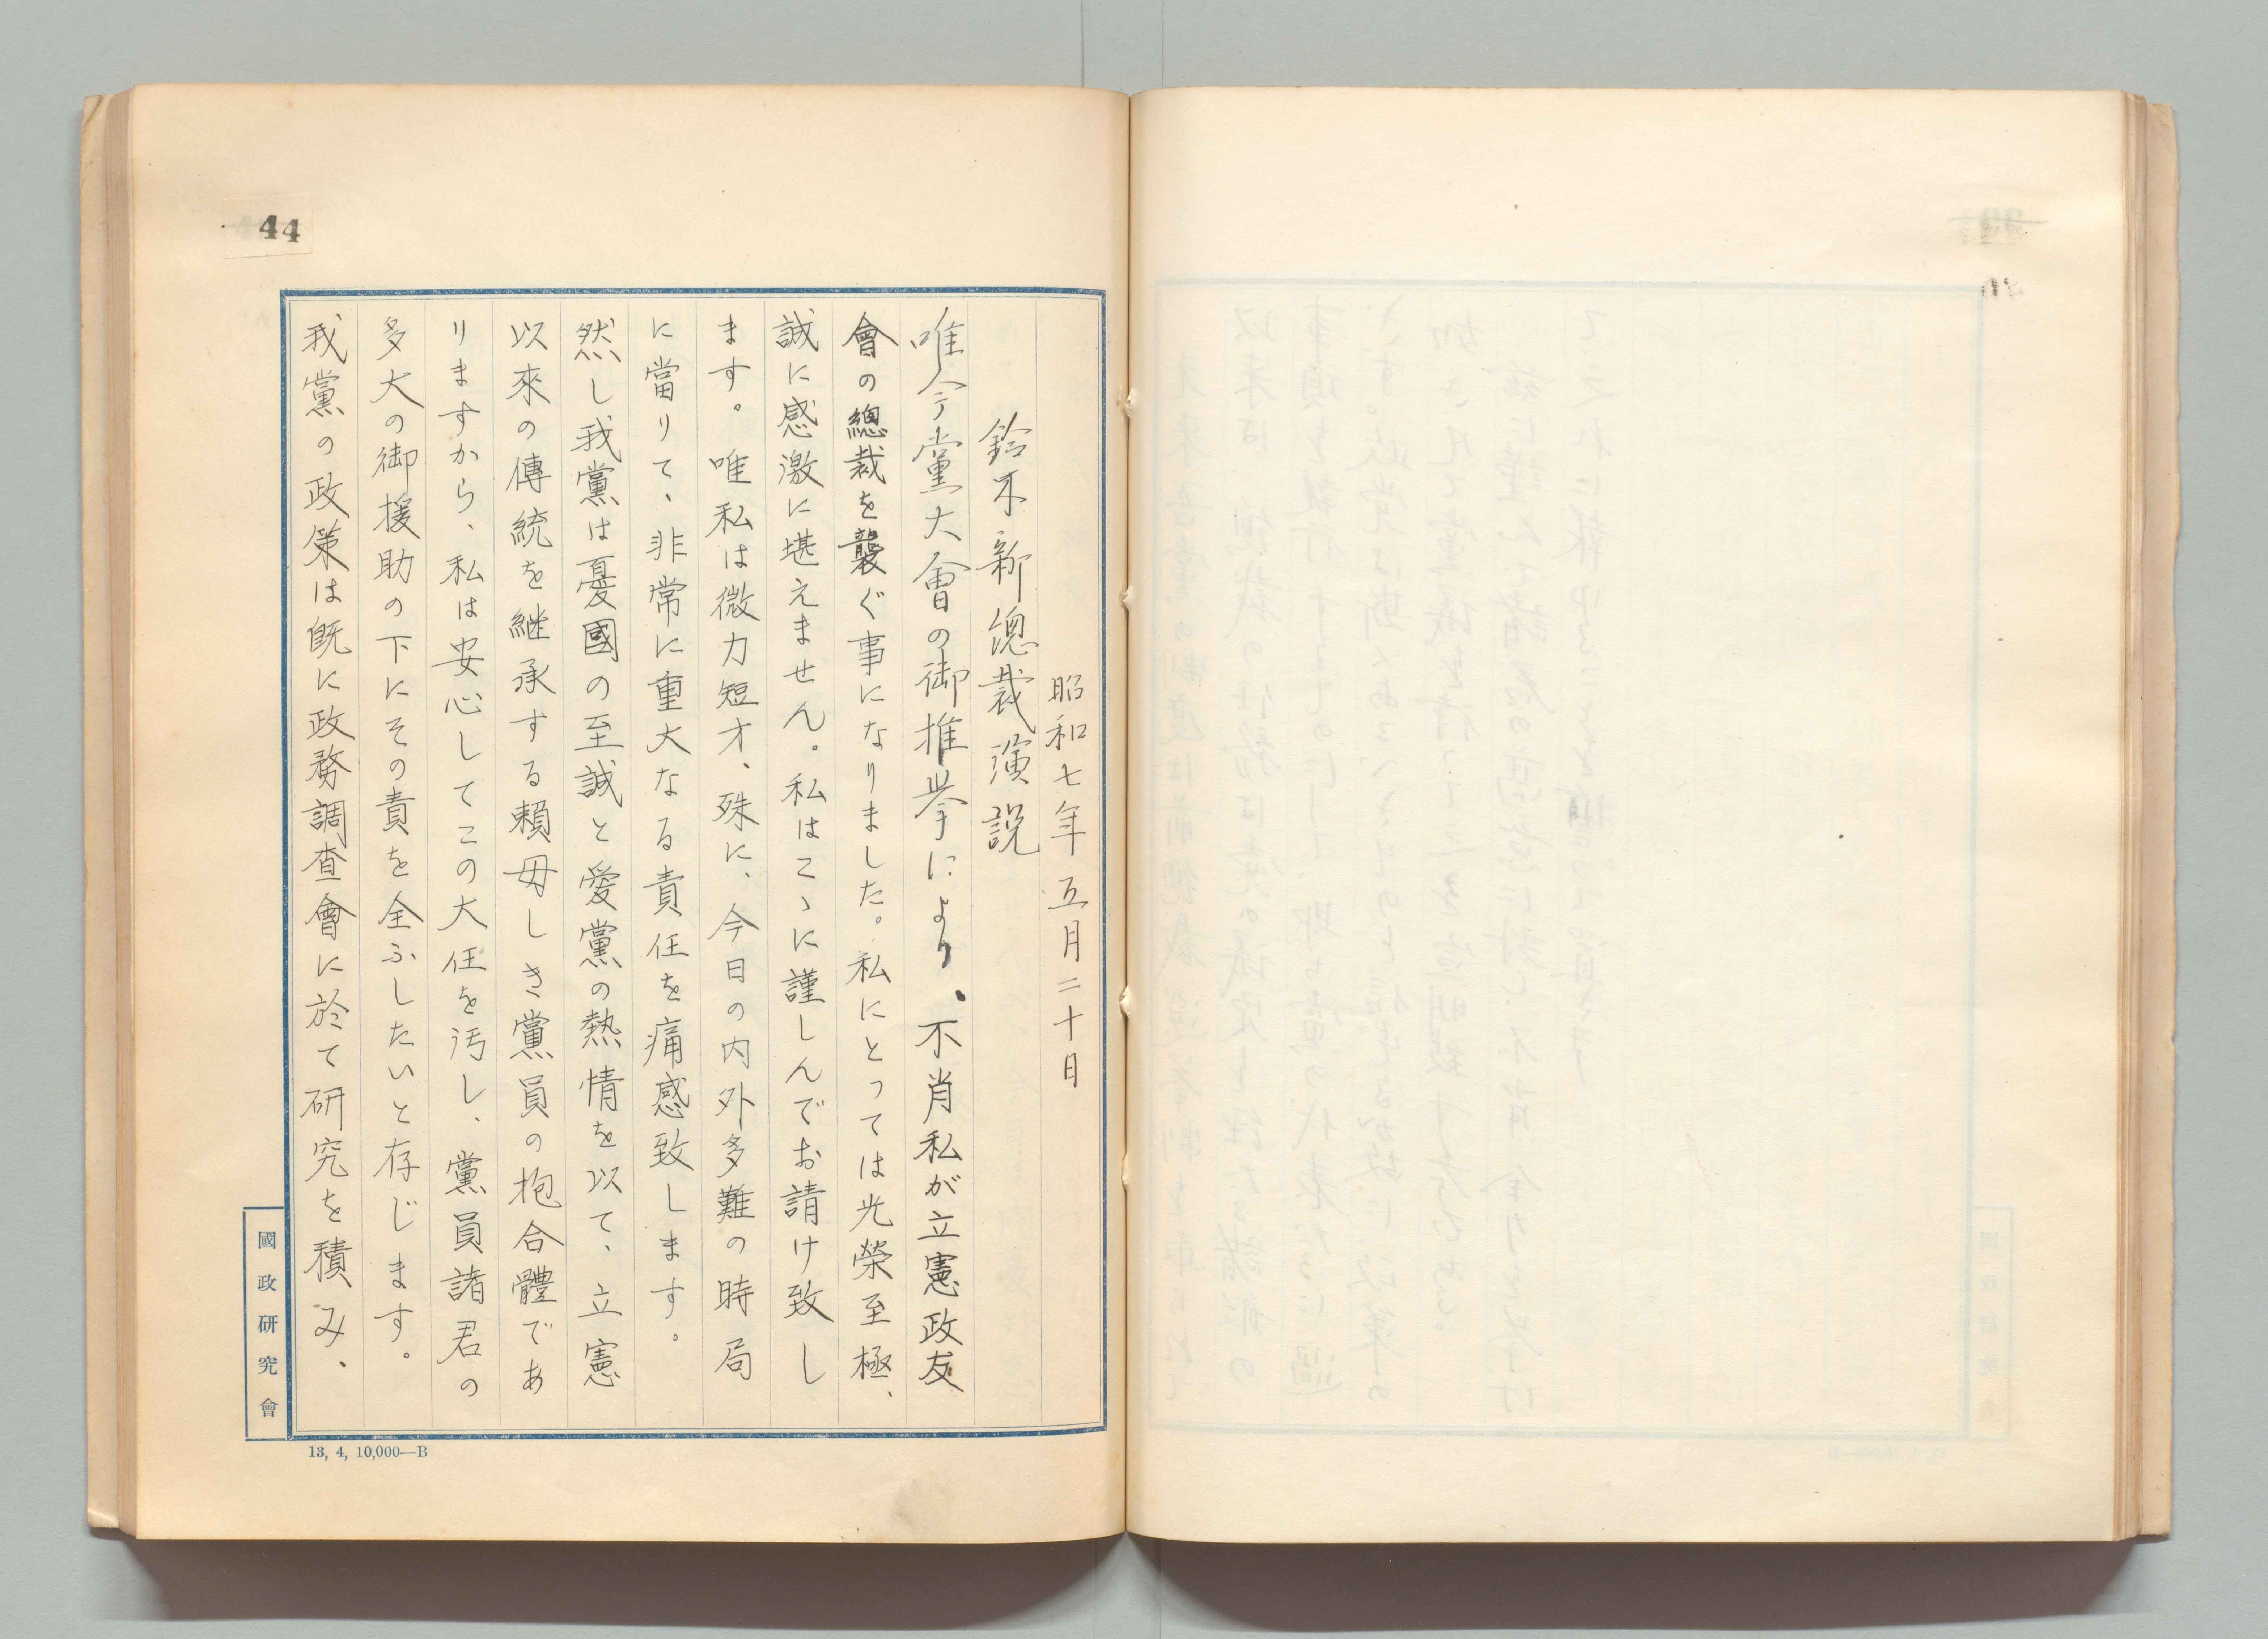 44
昭和七年五月二十日
鈴木新總裁演説
唯今黨大會の御推挙により、不肖私が立憲政友
會の總裁を襲ぐ事になりました。私にとっては光榮至極、
誠に感激に堪えません。私はこゝに謹しんでお請け致し
ます。唯私は微力短才、殊に、今日の内外多難の時局
に當りて、非常に重大なる責任を痛感致します。
然し我黨は憂國の至誠と愛黨の熱情を以て、立憲
以來の傳統を継承する頼母しき黨員の抱合體であ
りますから、私は安心してこの大任を汚し、黨員諸君の
多大の御援助の下にその責を全ふしたいと存じます。
我黨の政策は既に政務調査會に於て研究を積み、
國政研究會
13, 4, 10,000—B